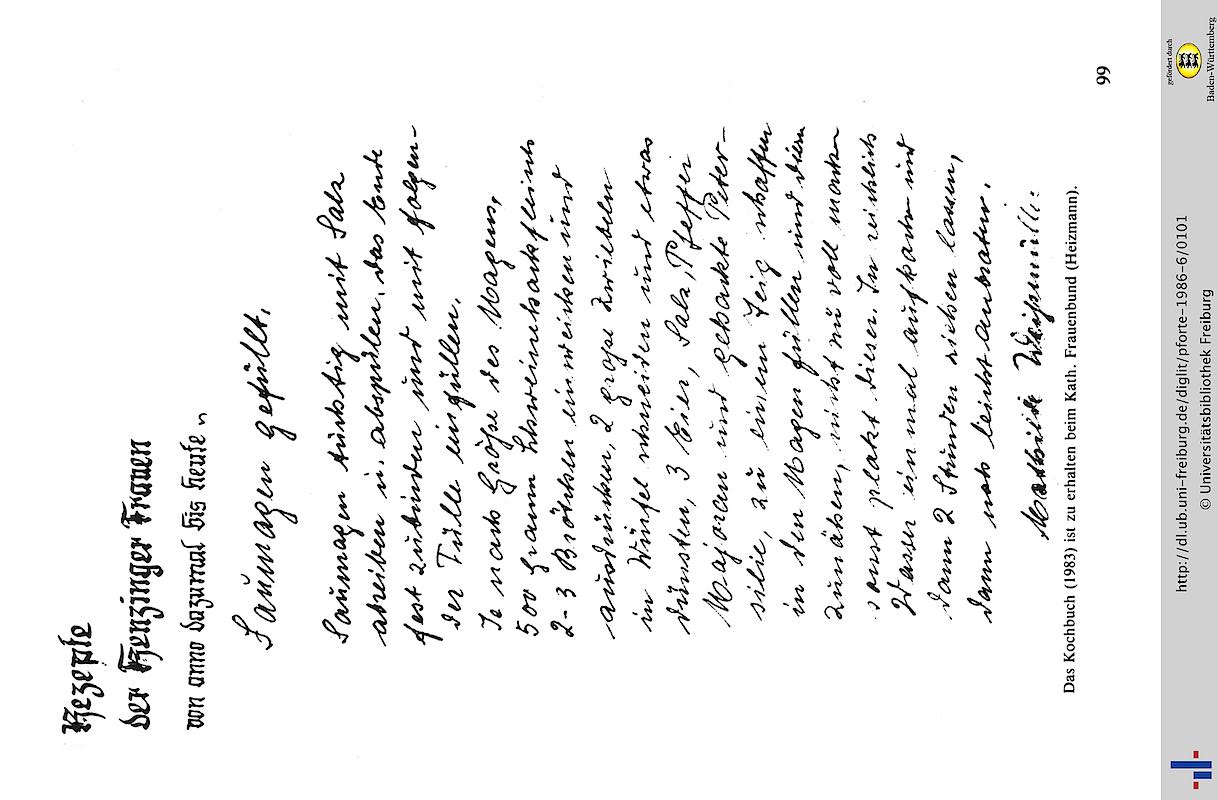 Rezepte
der Kenzinger Frauen
von anno dazumal bis heute „
Saumagen gefüllt.
Saumagen tüchtig mit Salz
abreiben u. abspülen, das Ende
fest zubinden und mit folgen-
der Fülle einfüllen.
Je nach Größe des Magens,
500 Gramm Schweinehackfleisch
2-3 Brötchen einweichen und
ausdrücken, 2 große Zwiebeln
in Würfel schneiden und etwas
dünsten, 3 Eier, Salz, Pfeffer
Majoran und gehackte Peter-
silie, zu einem Teig schaffen
in den Magen füllen und diesen
zunähen, nicht zu voll machen
sonst platzt dieser. In reichlich
Wasser einmal aufkochen und
dann 2 Stunden ziehen lassen,
dann noch leicht anbraten.
Mathilde
Das Kochbuch (1983) ist zu erhalten beim Kath. Frauenbund (Heizmann).
99
http://dl.ub.uni-freiburg.de/diglit/pforte-1986-6/0101
© Universitätsbibliothek Freiburg
gefördert durch
Baden-Württemberg